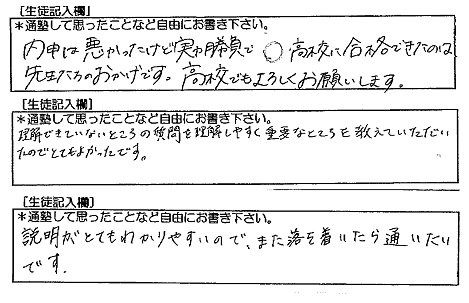 [生徒記入欄]
＊通塾して思ったことなど自由にお書き下さい。
内申は悪かったけど実力勝負で〇高校に合格できたのは
先生たちのおかげです。高校でもよろしくお願いします。
[生徒記入欄]
＊通塾して思ったことなど自由にお書き下さい。
理解できていないところの質問を理解しやすく重要なところも教えていただい
たのでとてもよかったです。
[生徒記入欄]
＊通塾して思ったことなど自由にお書き下さい。
説明がとてもわかりやすいので、また落ち着いたら通いたい
です。